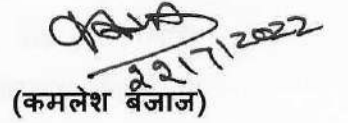 22/7/2022
(कमलेश बजाज)